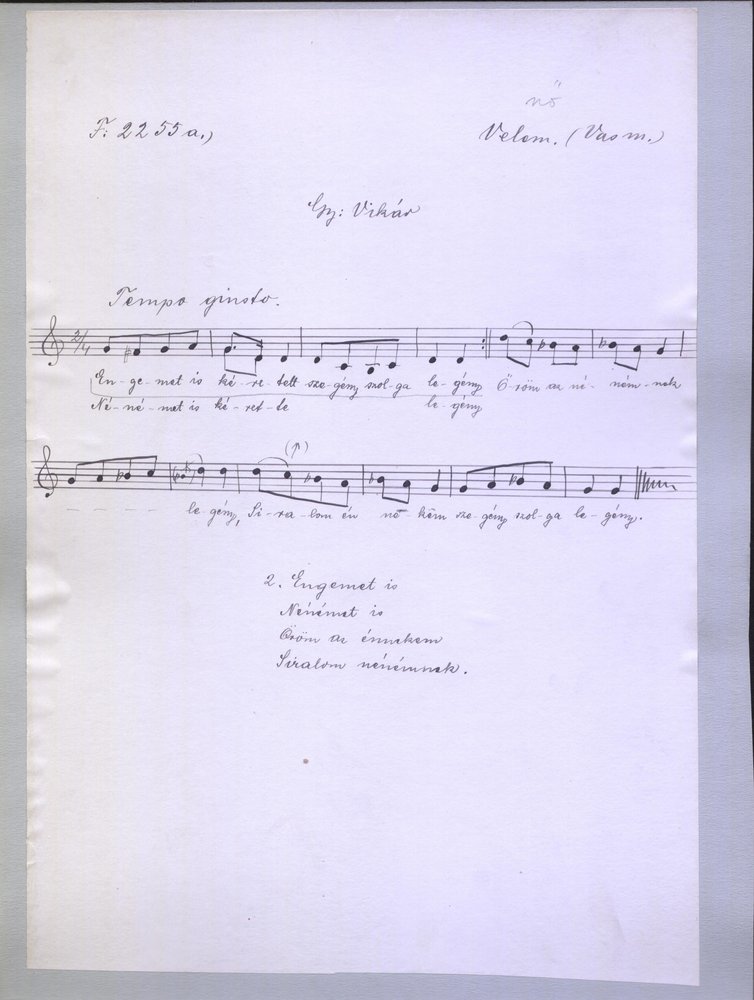 nő
F: 2255a.)
Velem. (Vas m.)
Gy: Vikár
Tempo giusto.
2/4
En-ge-met is ké-re-tett sze-gény szol-ga le-gény Ö-röm az né-ném-nek
Né-né-met is ké-ret-te le-gény
le-gény, Si-ra-lom én né-kem sze-gény szol-ga le-gény.
2. Engemet is
Nénémet is
Öröm az énnekem
Siralom nénémnek.